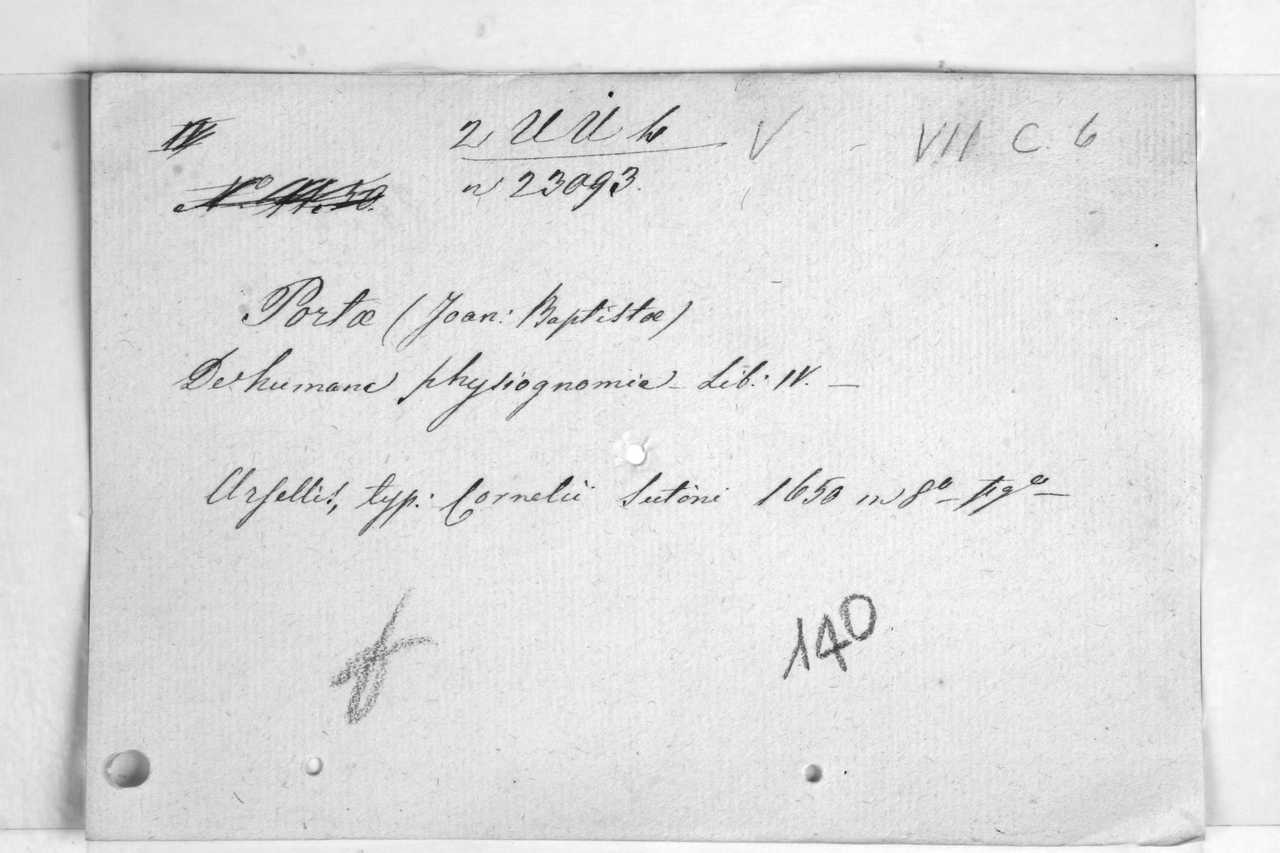 IV 2 U U h V - VII C. 6
n 23093.
Portæ (Joan: Baptistæ)
De humana physiognomia - Lib: IV. -
Urſellis, typ: Cornelii Sutóni 1650 in 8º figº
140